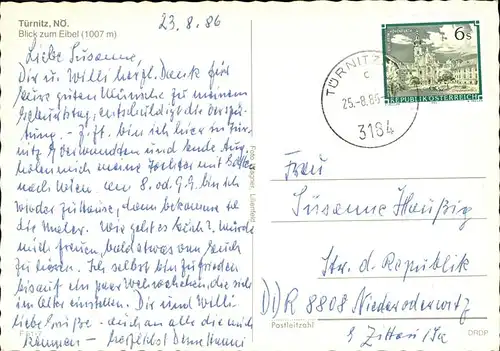 Türnitz, NÖ.
Blick zum Eibel (1007 m)
23.8.86
Liebe Susanne,
Dir u. Willi herzl. Dank für
Eure guten Wünsche zu meinem
Geburtstag, entschuldigt die Verspä-
tung. - Z. Zt. bin ich hier in Tür-
nitz b. Verwandten und Ende Aug.
holen mich meine Tochter mit
nach Wien am 8. od. 9.9. bin ich
wieder zuhause, dann bekomme ich
die Maler. Wie geht es Euch? Würde
mich freuen, bald etwas von Euch
zu lesen. Ich selbst bin zufrieden
bis auf ein paar Wehwehchen, die sich
im Alter einstellen. Dir und Willi
liebe Grüße - auch an alle die mich
kennen - herzlichst Deine
TÜRNITZ
c
25.-8.86
3184
6 S
REPUBLIK ÖSTERREICH
Frau
Susanne Haußig
Str. d. Republik
DDR 8808 Niederoderwitz
Postleitzahl
Kr. Zittau/Sa
DRDP